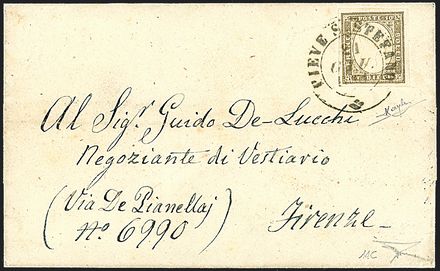 PIEVE S. STEFANO
Al Sigr. Guido De-Lucchi
Negoziante di Vestiario
(Via De Pianellaj
No. 6990)
Firenze
MC